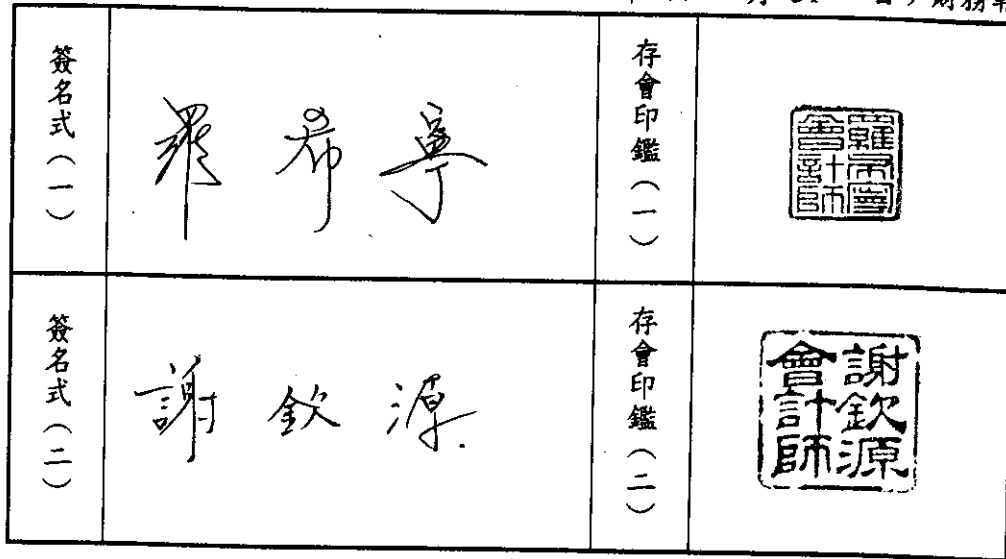 財務
簽名式(一)
羅希寧
存會印鑑(一)
羅希寧會計師
簽名式(二)
謝欽源
存會印鑑(二)
謝欽源會計師